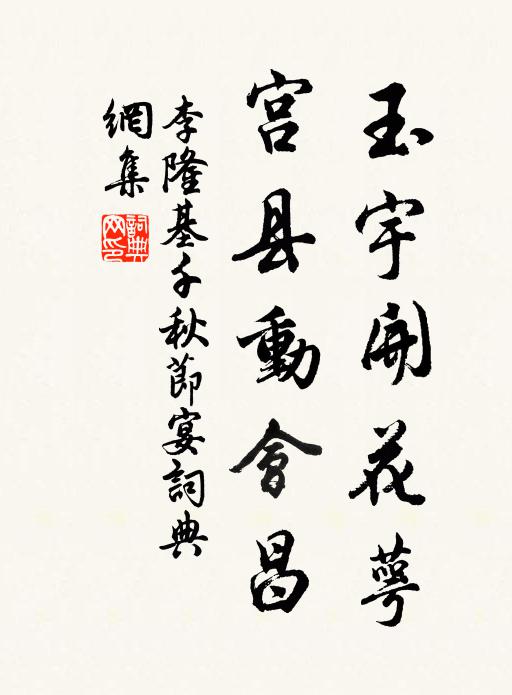 玉宇開花萼
宫县動會昌
李隆基千秋節宴詞典
網集
詞典网印